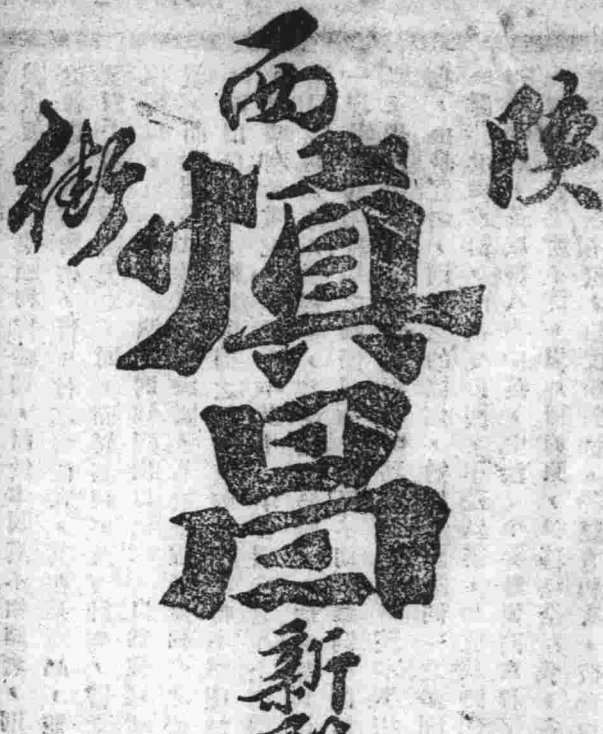 陝西街
慎昌
新